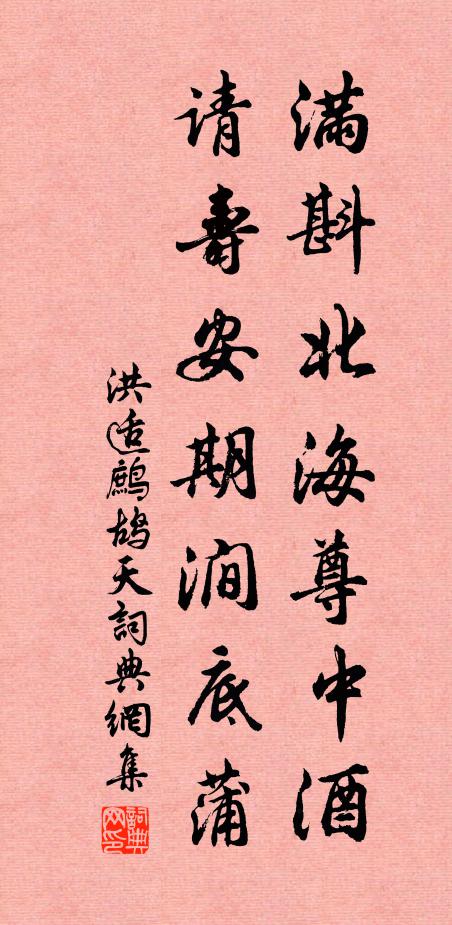 满斟北海尊中酒
请寿安期涧底蒲
洪适鹧鸪天詞典網集
詞典网印